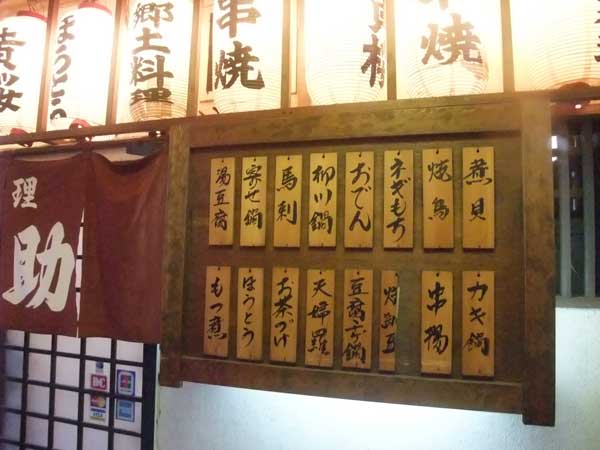 貴桜
ほうとう
郷土料理
串焼
串焼
理
助
煮貝
焼鳥
ネギもち
おでん
柳川鍋
馬刺
寄せ鍋
湯豆腐
カキ鍋
串揚
天婦羅
お茶づけ
ほうとう
もつ煮
JCB
VISA